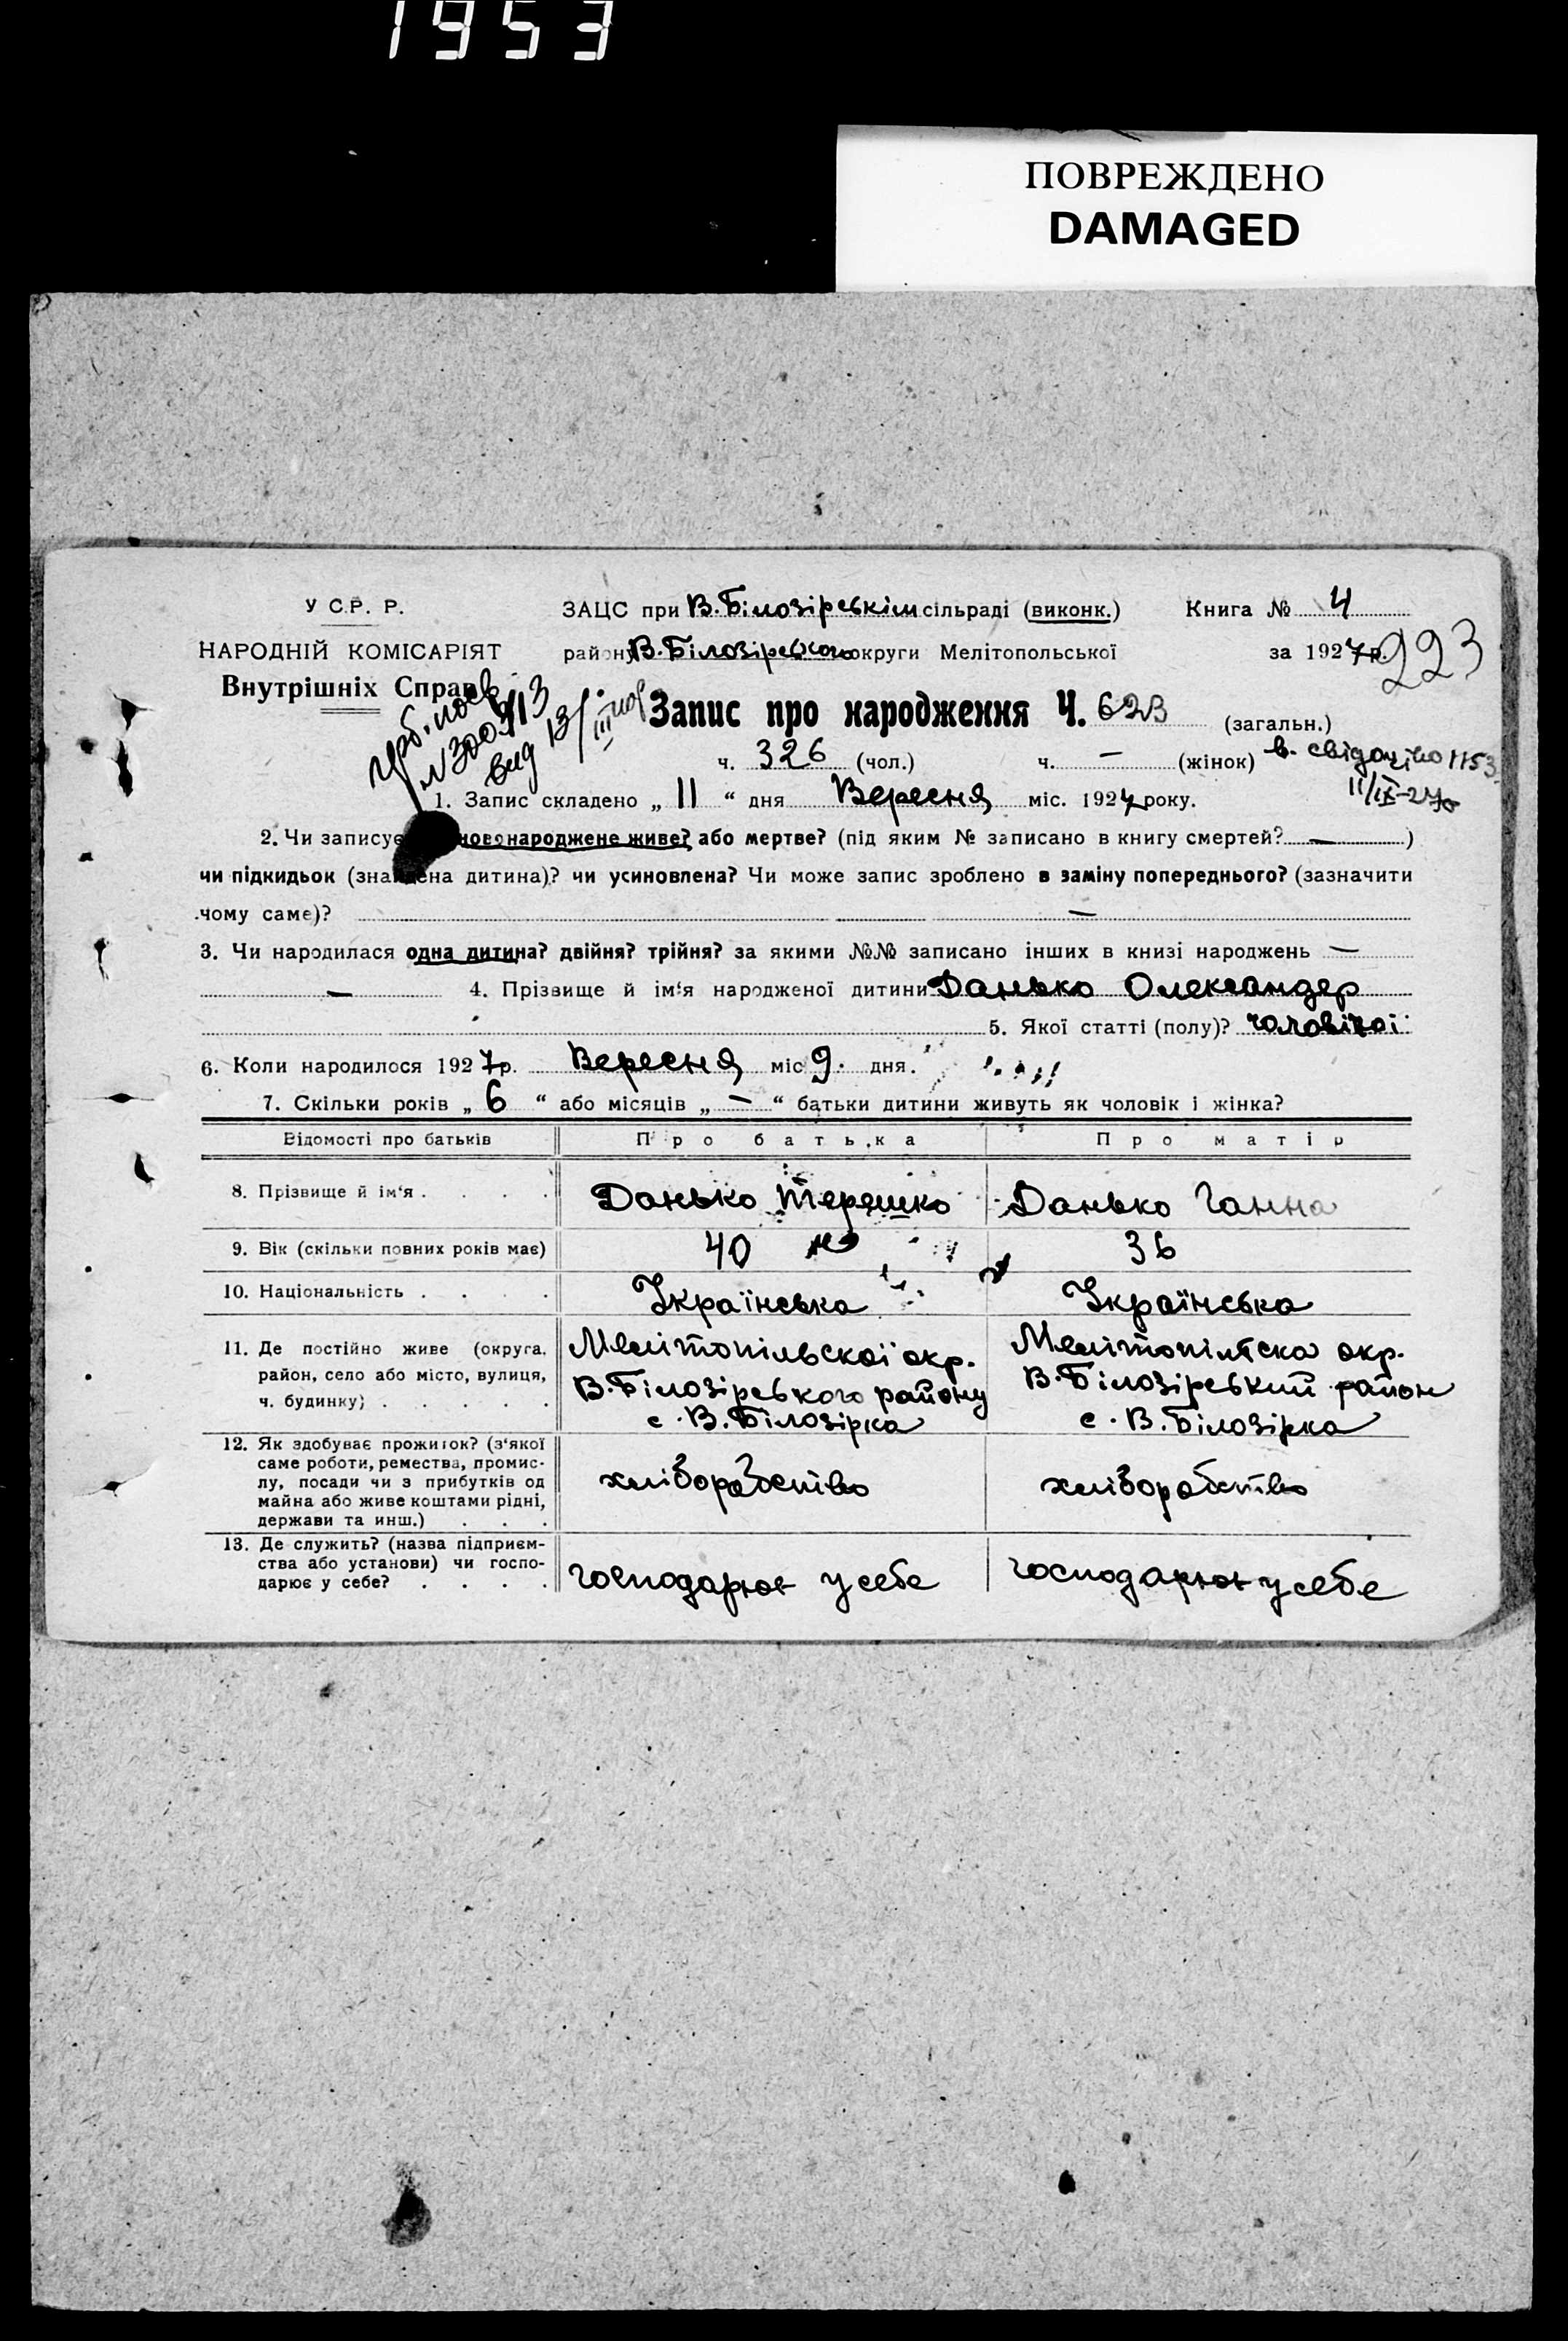 1953
ПОВРЕЖДЕНО
DAMAGED
У С.Р. Р.
ЗАЦС при В.Білозірськім сільраді (виконк.) Книга № 4
НАРОДНІЙ КОМІСАРІЯТ
району В.Білозірського округи Мелітопольської за 1927 р. 223
Внутрішніх Справ
Запис про народження Ч. 623 (загальн.)
вид 13/III
ч. 326 (чол.) ч. — (жінок) в. 1153
11/IX-27р
1. Запис складено „ 11 “ дня Вересня міс. 1927 року.
2. Чи записує новонароджене живе? або мертве? (під яким № записано в книгу смертей? — )
чи підкидьок (знайдена дитина)? чи усиновлена? Чи може запис зроблено в заміну попереднього? (зазначити
чому саме)? —
3. Чи народилася одна дитина? двійня? трійня? за якими №№ записано інших в книзі народжень —
— 4. Прізвище й ім‘я народженої дитини Данько Олександер
5. Якої статті (полу)? чоловічої
6. Коли народилося 1927 р. Вересня міс 9. дня.
7. Скільки років „ 6 “ або місяців „ — “ батьки дитини живуть як чоловік і жінка?
Відомості про батьків Про батька Про матір
8. Прізвище й ім‘я . . . . Данько Терешко Данько Ганна
9. Вік (скільки повних років має) 40 36
10. Національність . . . . Українська Українська
11. Де постійно живе (округа, район, село або місто, вулиця, ч. будинку) . . . . .
Мелітопільскої окр.
В.Білозірського району
с. В.Білозірка
Мелітопільска окр.
В.Білозірський район
с. В.Білозірка
12. Як здобуває прожиток? (з‘якої
саме роботи, ремества, промис-
лу, посади чи з прибутків од
майна або живе коштами рідні,
держави та инш.) . . .
хліборобство хліборобство
13. Де служить? (назва підприєм-
ства або установи) чи госпо-
дарює у себе? . . . .
господарює у себе господарює у себе